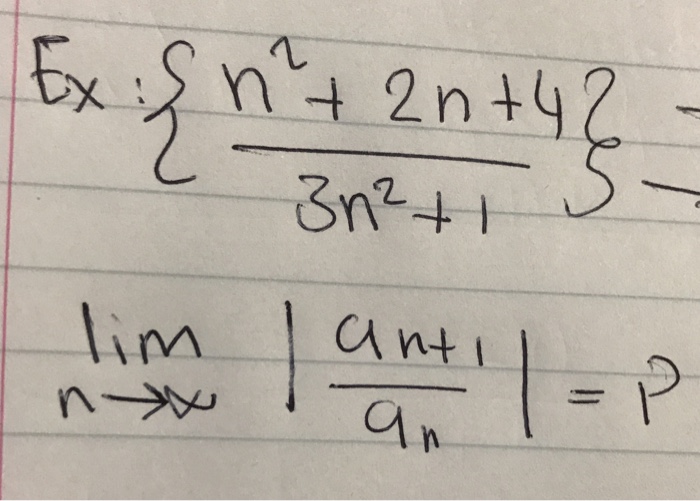 Ex: { n² + 2n + 4 }
3n² + 1
lim | an+1 | = P
n→∞ an